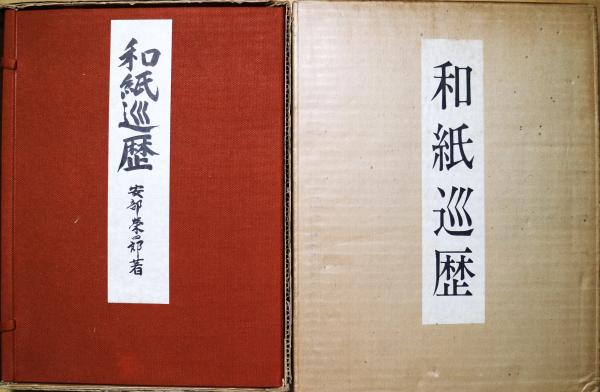 和紙巡歴
安部榮四郎著
和紙巡歴